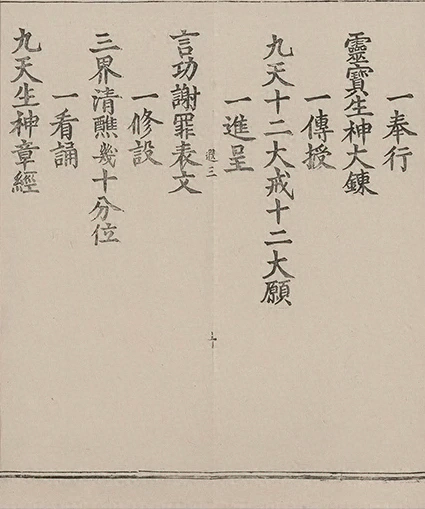 一奉行
靈寳生神大鍊
一傳授
九天十二大戒十二大願
一進呈
遐三
十
言功謝罪表文
一修設
三界清醮幾十分位
一看誦
九天生神章經